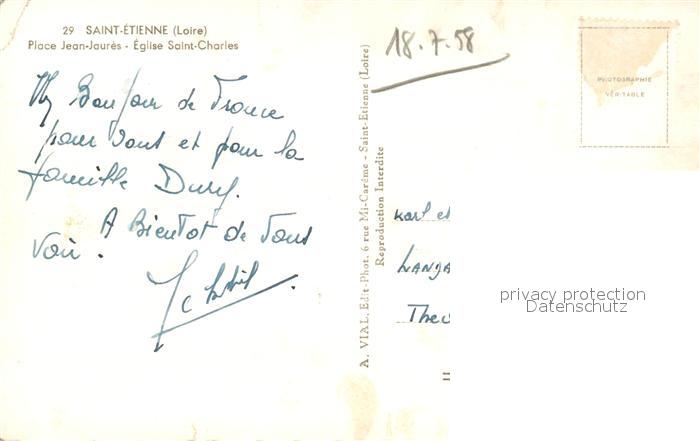 29 SAINT-ÉTIENNE (Loire)
Place Jean-Jaurès - Église Saint-Charles
Bonjour de France
pour vous et pour la
famille
A Bientot de vous
voir.
18.7.58
A. VIAL, Edit-Phot. 6 rue Mi-Carême - Saint-Etienne (Loire)
Reproduction Interdite
PHOTOGRAPHIE
VÉRITABLE
Karl et
privacy protection
Datenschutz